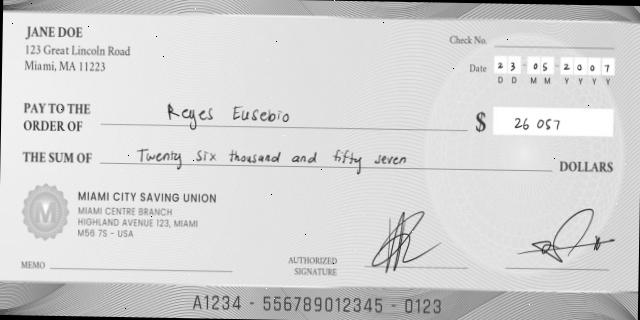 JANE DOE
123 Great Lincoln Road
Miami, MA 11223
Check No.
Date 23 - 05 - 2007
D D M M Y Y Y Y
PAY TO THE
ORDER OF Reyes Eusebio $ 26 057
THE SUM OF Twenty six thousand and fifty seven DOLLARS
M
MIAMI CITY SAVING UNION
MIAMI CENTRE BRANCH
HIGHLAND AVENUE 123, MIAMI
M56 7S - USA
MEMO
AUTHORIZED
SIGNATURE
A1234 - 556789012345 - 0123